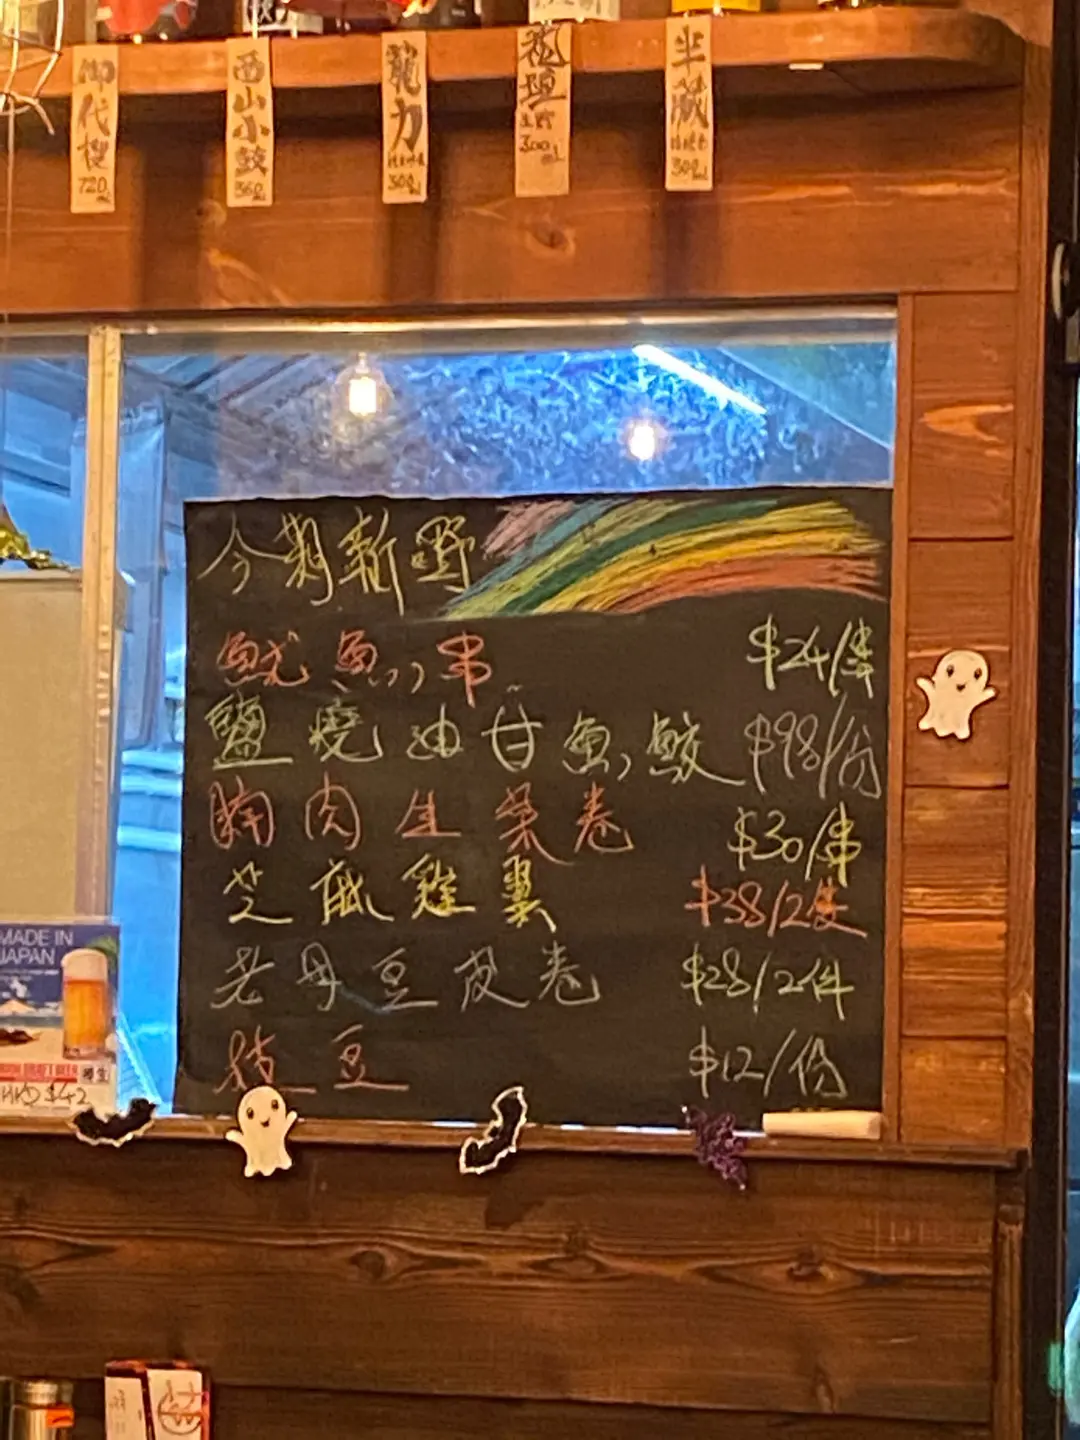 御代櫻
720mL
西山小鼓
360mL
龍力
300mL
300mL
半藏
300mL
今期新嘢
魷魚串 $24/串
鹽燒油甘魚鮫 $98/份
腩肉生菜卷 $30/串
芝士雞翼 $38/2隻
老母豆皮卷 $28/2件
枝豆 $12/份
MADE IN
JAPAN
DRAFT BEER
HKD $42